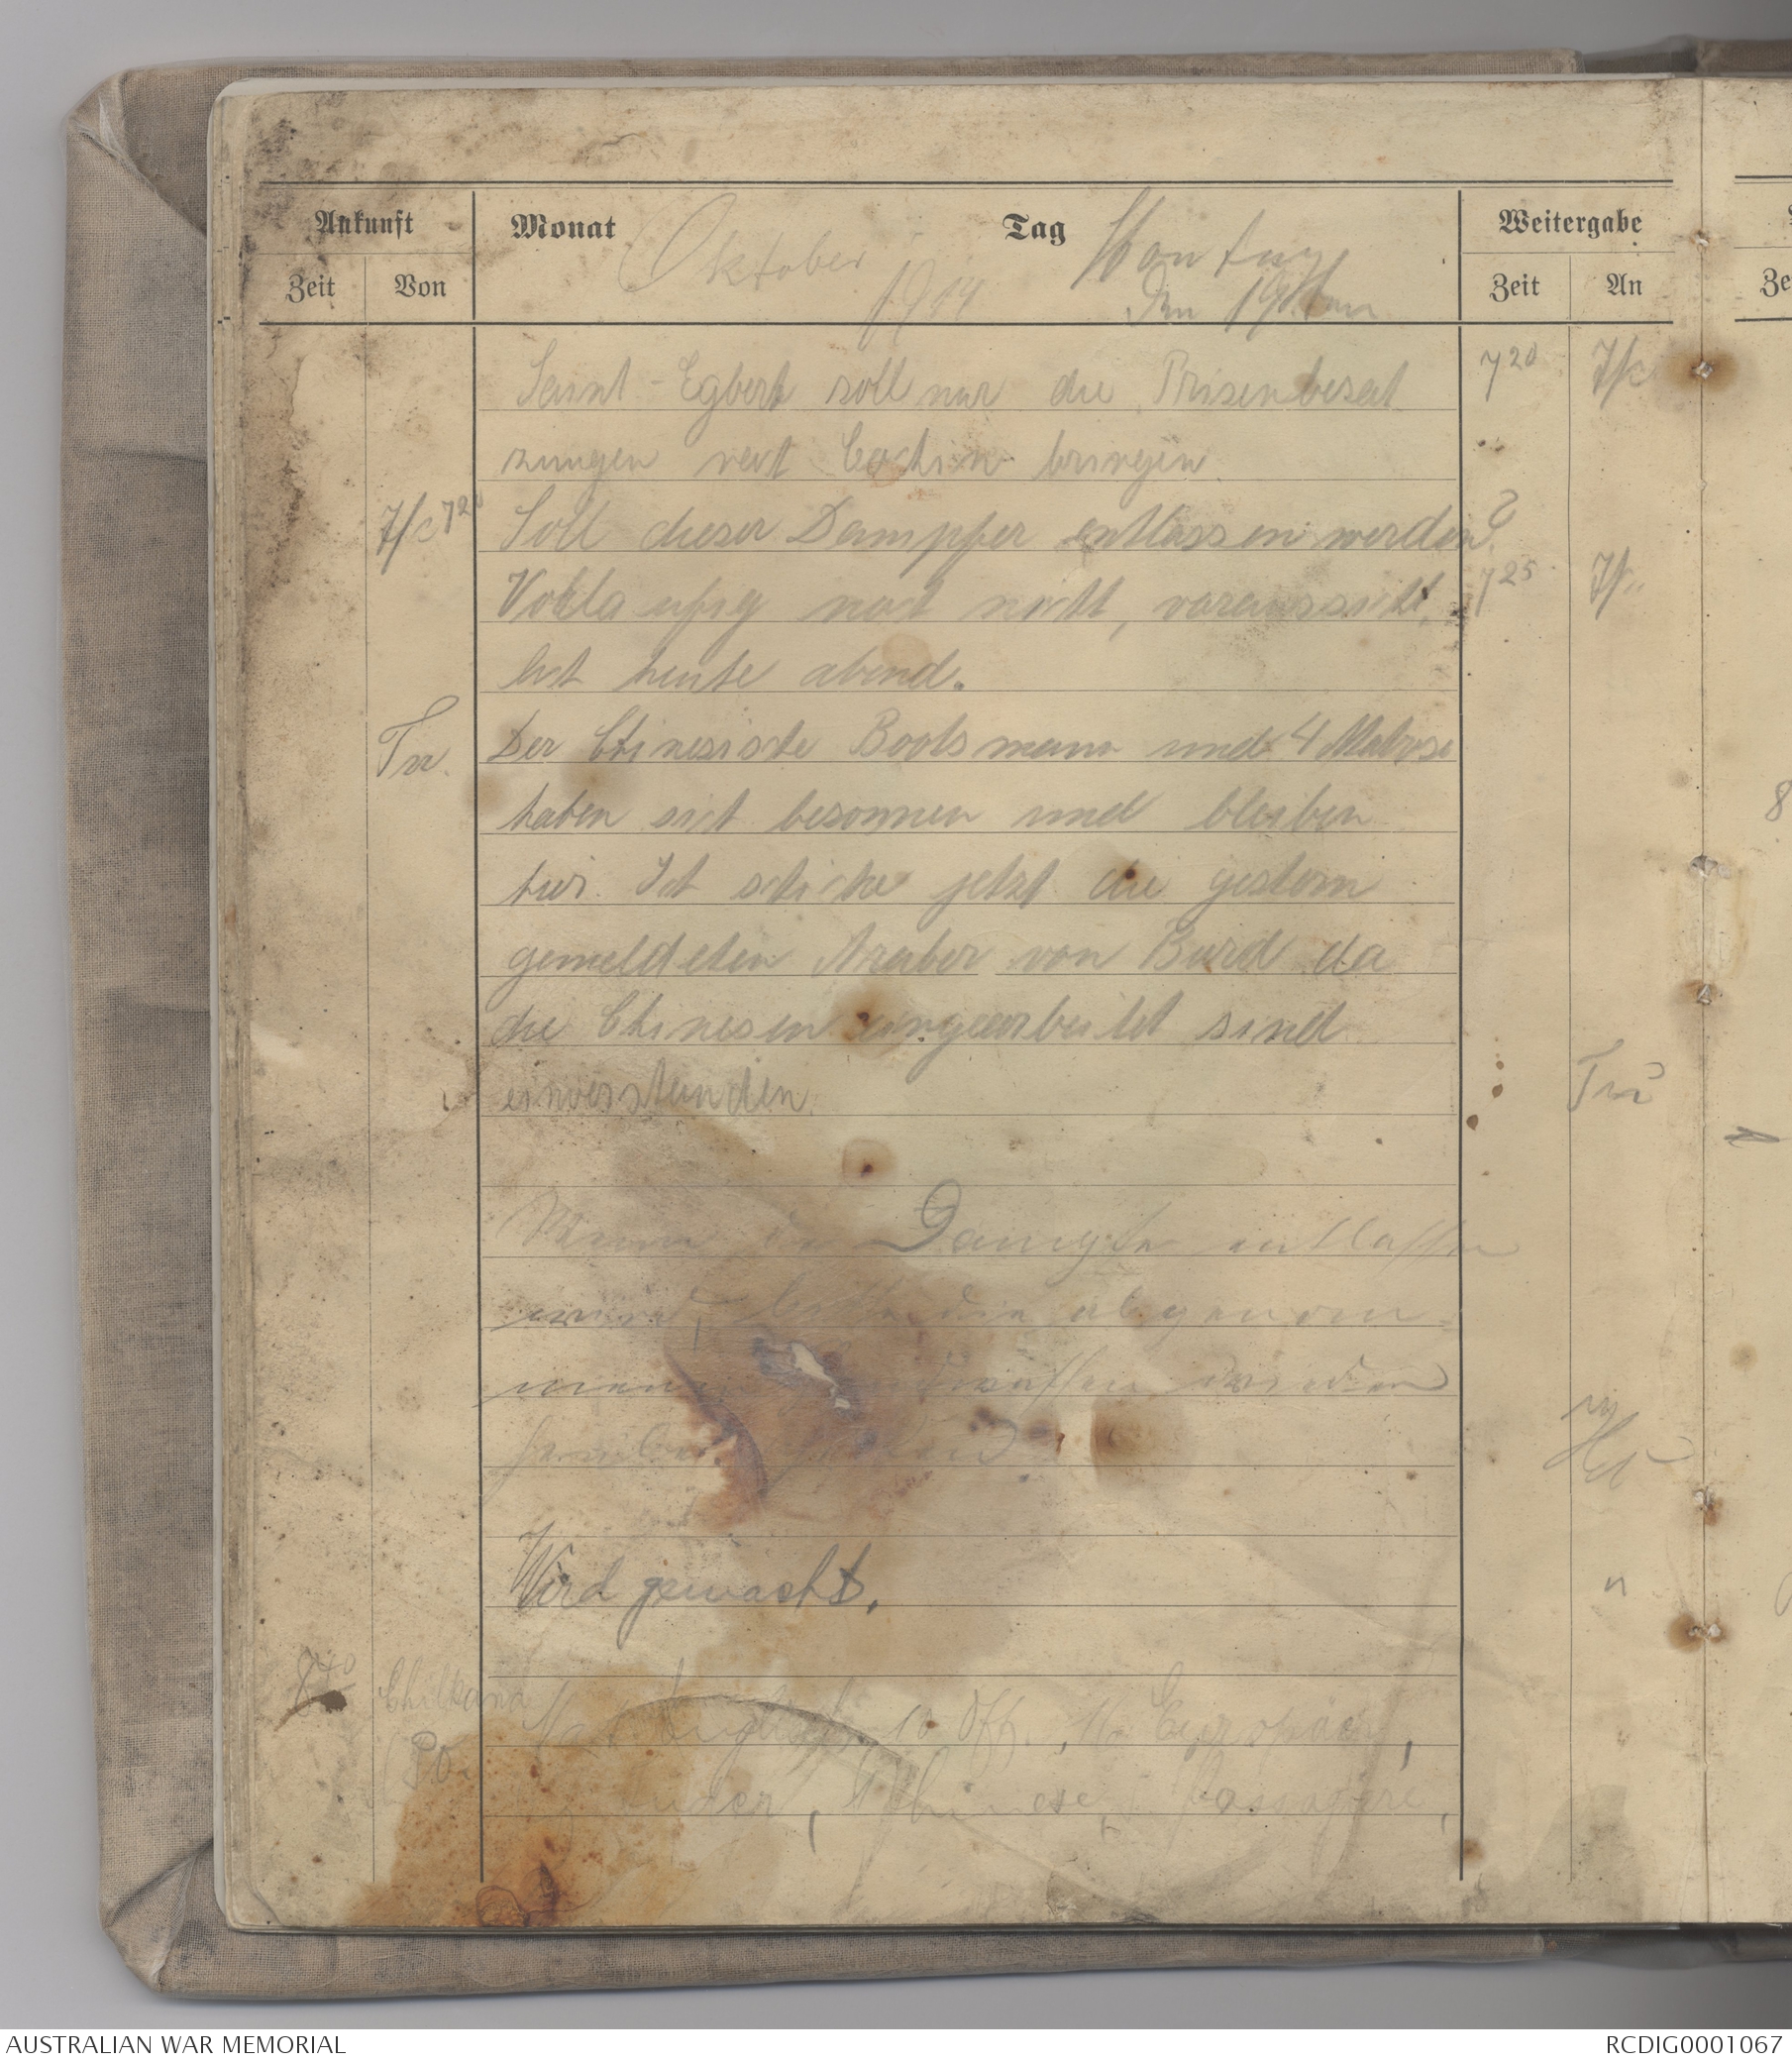 Ankunft
Monat Oktober 1914
Tag Montag den 19ten
Weitergabe
Zeit Von
Zeit An
Saint-Egbert soll nur die Prisenbesat 7 20
zungen nach Cochin bringen
7 20 Soll dieser Dampfer entlassen werden?
Vorlaeufig noch nicht, voraussicht, 7 25
lich heute abend.
Tr. Der Chinesische Bootsmann und 4 Matrose
haben sich besonnen und bleiben
hier. Ich schicke jetzt die gestern
gemeldeten Araber von Bord da
die Chinesen eingearbeitet sind
einverstanden. Tr
Wenn der Dampfer entlassen
wird, bitte die abgenom-
menen werden
Wird gemacht. "
8 40 Chilkana
P.O. Nat. Englisch, 10 Off., Europäer,
Inder, Chinese, Passagiere,
AUSTRALIAN WAR MEMORIAL
RCDIG0001067